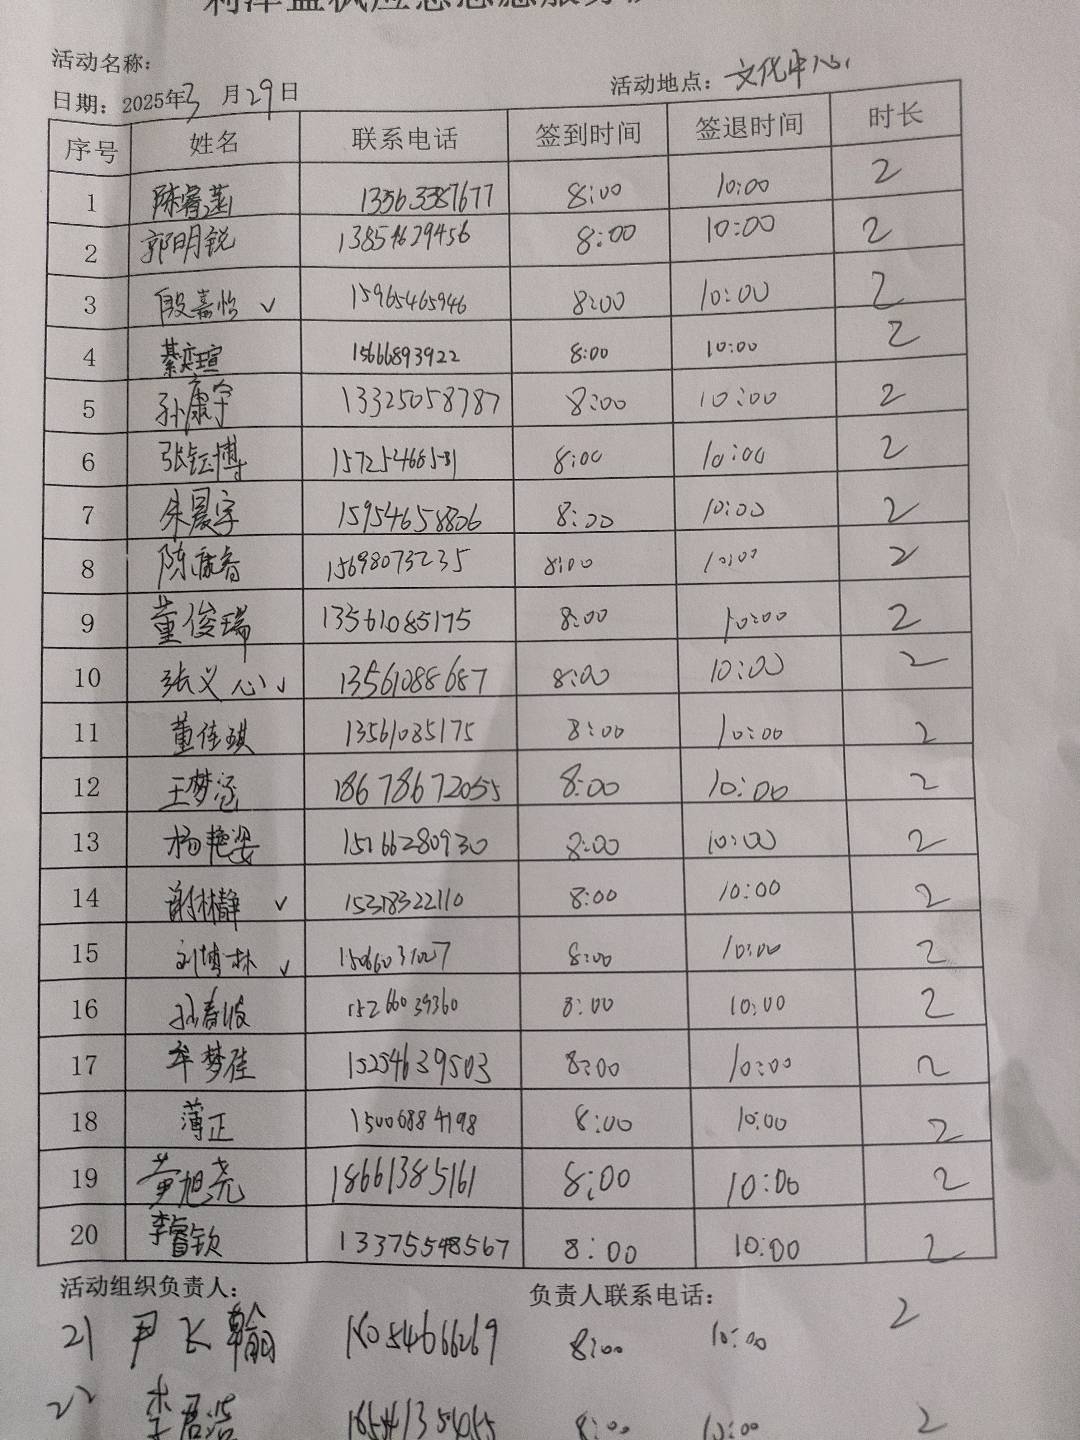 活动名称：
日期：2025年3月29日 活动地点：文化中心
序号 姓名 联系电话 签到时间 签退时间 时长
1 陈睿菡 13563387677 8:00 10:00 2
2 郭明锐 13854629456 8:00 10:00 2
3 段嘉怡 ✓ 15965465946 8:00 10:00 2
4 綦奕瑄 15666893922 8:00 10:00 2
5 孙康宁 13325058787 8:00 10:00 2
6 张钰博 15725468531 8:00 10:00 2
7 朱晨宇 15954658806 8:00 10:00 2
8 陈康睿 15698073235 8:00 10:00 2
9 董俊瑞 13561085175 8:00 10:00 2
10 张义心 ✓ 13561088687 8:00 10:00 2
11 董佳琪 13561085175 8:00 10:00 2
12 王梦涵 18678672055 8:00 10:00 2
13 杨艳姿 15166280930 8:00 10:00 2
14 谢林静 ✓ 15318322110 8:00 10:00 2
15 刘博林 ✓ 8:00 10:00 2
16 孙春波 15266039360 8:00 10:00 2
17 牟梦佳 15254639503 8:00 10:00 2
18 薄正 15006884198 8:00 10:00 2
19 黄旭尧 18661385161 8:00 10:00 2
20 李睿钦 13375548567 8:00 10:00 2
活动组织负责人： 负责人联系电话：
21 尹长翰 8:00 10:00 2
22 李君浩 8:00 10:00 2